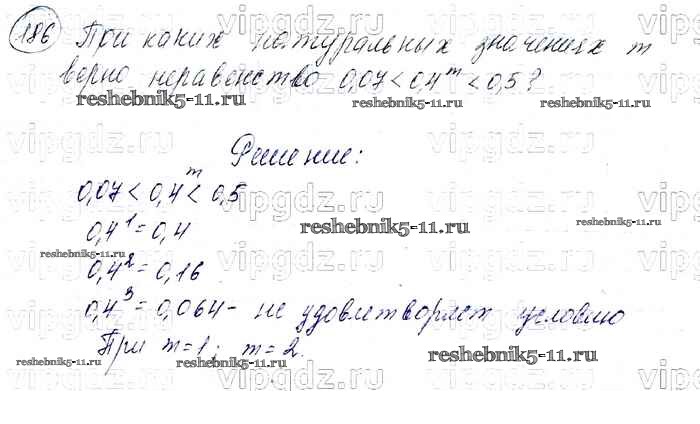 186 При каких натуральных значениях m
верно неравенство 0,07 < 0,4^m < 0,5?
reshebnik5-11.ru reshebnik5-11.ru
Решение:
0,07 < 0,4^m < 0,5
0,4^1 = 0,4
reshebnik5-11.ru
0,4^2 = 0,16
reshebnik5-11.ru
0,4^3 = 0,064 - не удовлетворяет условию
При m = 1; m = 2.
reshebnik5-11.ru reshebnik5-11.ru
vipgdz.ru